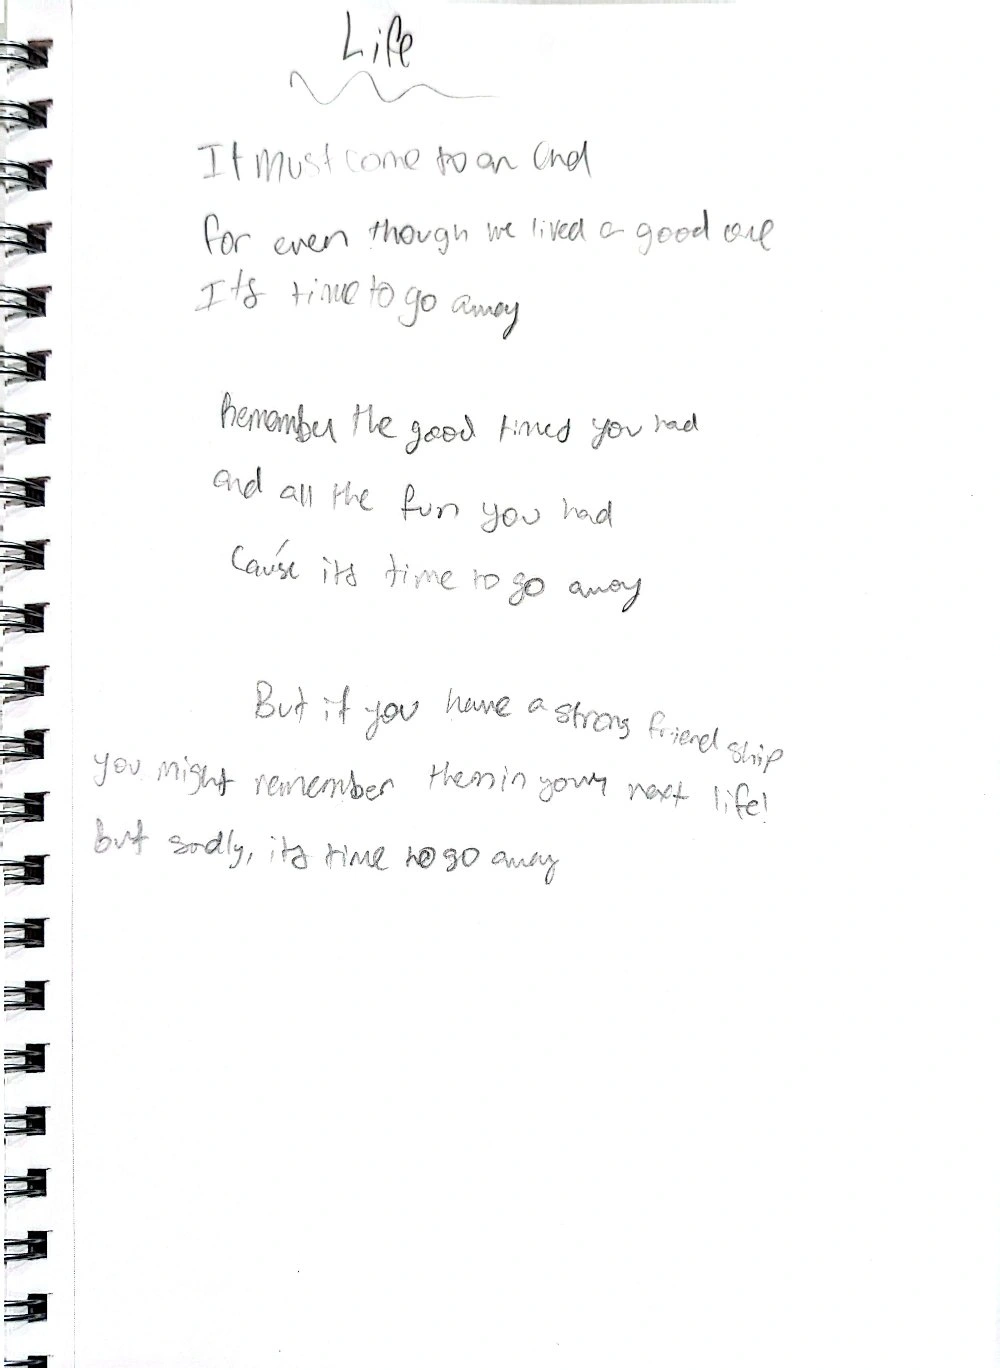 Life
It must come to an end
for even though we lived a good one
Its time to go away
Remember the good times you had
and all the fun you had
Cau'se its time to go away
But if you have a strong friendship
you might remember them in your next life!
but sadly, its time to go away